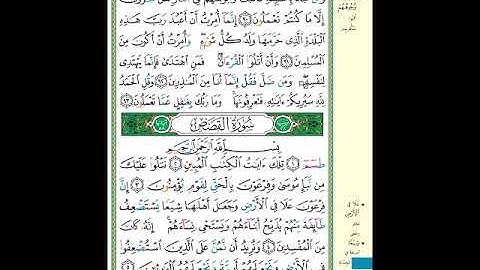 إِلَّا مَا كُنتُمْ تَعْمَلُونَ ۝ إِنَّمَا أُمِرْتُ أَنْ أَعْبُدَ رَبَّ هَٰذِهِ
الْبَلْدَةِ الَّذِي حَرَّمَهَا وَلَهُ كُلُّ شَيْءٍ وَأُمِرْتُ أَنْ أَكُونَ مِنَ
الْمُسْلِمِينَ ۝ وَأَنْ أَتْلُوَا الْقُرْءَانَ فَمَنِ اهْتَدَىٰ فَإِنَّمَا يَهْتَدِي
لِنَفْسِهِ وَمَن ضَلَّ فَقُلْ إِنَّمَا أَنَا مِنَ الْمُنذِرِينَ ۝ وَقُلِ الْحَمْدُ
لِلَّهِ سَيُرِيكُمْ ءَايَٰتِهِ فَتَعْرِفُونَهَا وَمَا رَبُّكَ بِغَٰفِلٍ عَمَّا تَعْمَلُونَ ۝
سُورَةُ الْقَصَصِ
بِسْمِ اللَّهِ الرَّحْمَٰنِ الرَّحِيمِ
طسٓمٓ ۝ تِلْكَ ءَايَٰتُ الْكِتَٰبِ الْمُبِينِ ۝ نَتْلُوا عَلَيْكَ
مِن نَّبَإِ مُوسَىٰ وَفِرْعَوْنَ بِالْحَقِّ لِقَوْمٍ يُؤْمِنُونَ ۝ إِنَّ
فِرْعَوْنَ عَلَا فِي الْأَرْضِ وَجَعَلَ أَهْلَهَا شِيَعًا يَسْتَضْعِفُ
طَائِفَةً مِّنْهُمْ يُذَبِّحُ أَبْنَاءَهُمْ وَيَسْتَحْيِي نِسَاءَهُمْ إِنَّهُ كَانَ
مِنَ الْمُفْسِدِينَ ۝ وَنُرِيدُ أَن نَّمُنَّ عَلَى الَّذِينَ اسْتُضْعِفُوا
فِي الْأَرْضِ وَنَجْعَلَهُمْ أَئِمَّةً وَنَجْعَلَهُمُ الْوَٰرِثِينَ